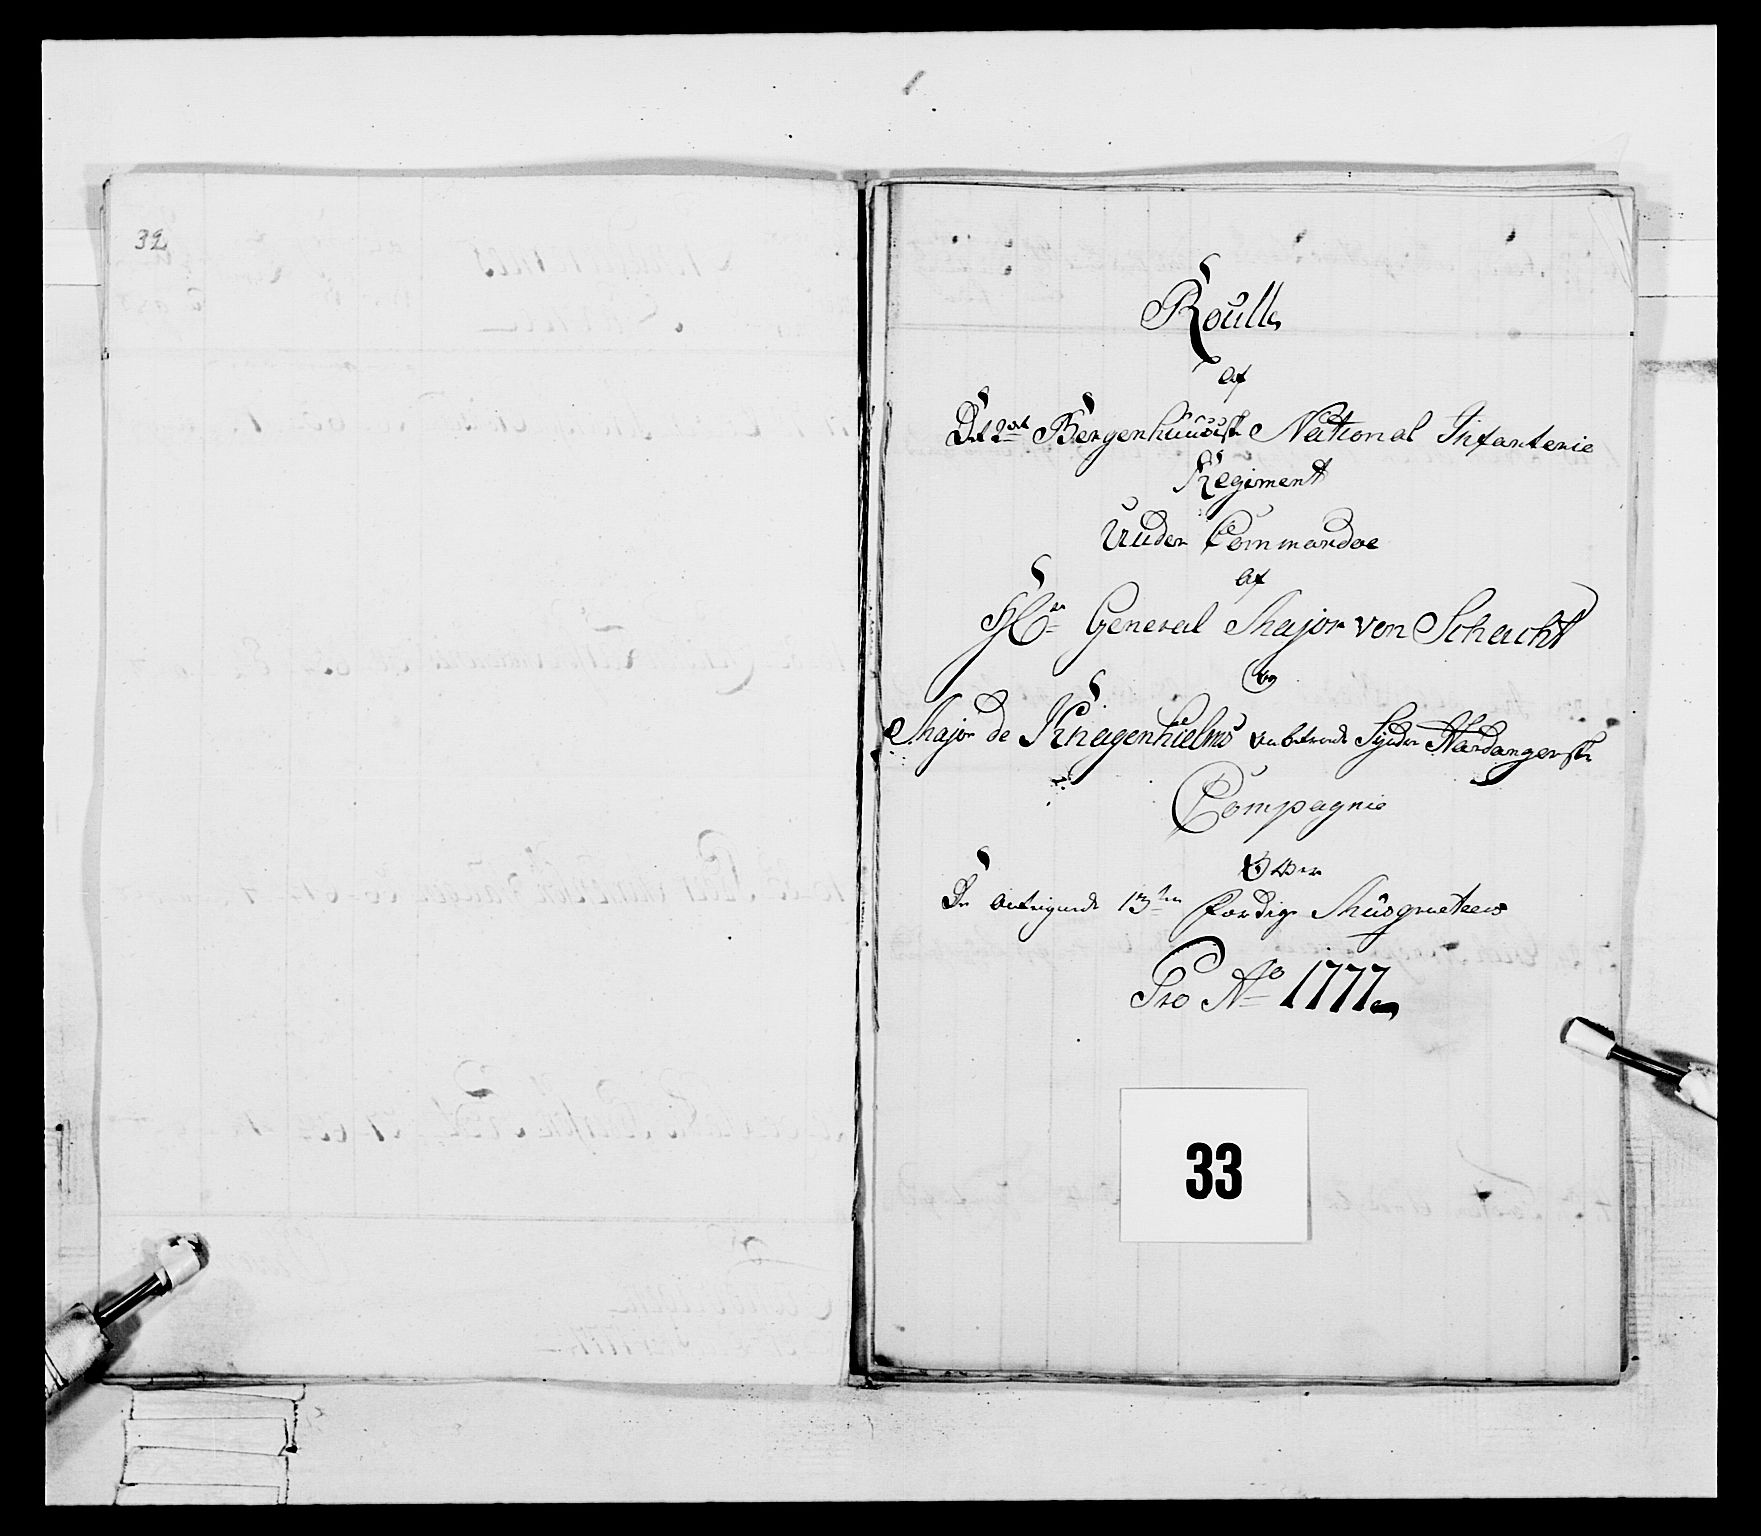 32
Roulle
af
Det 2det Bergenhuusiske National Infanterie
Regiment
Under Commandoe
af
Hr General Major von Schacht
og
Major de Knagenhielms anbetroede Hardangerske
Compagnie
Over
De 13ten færdige Musqueteers
Pro Ao 1777
33